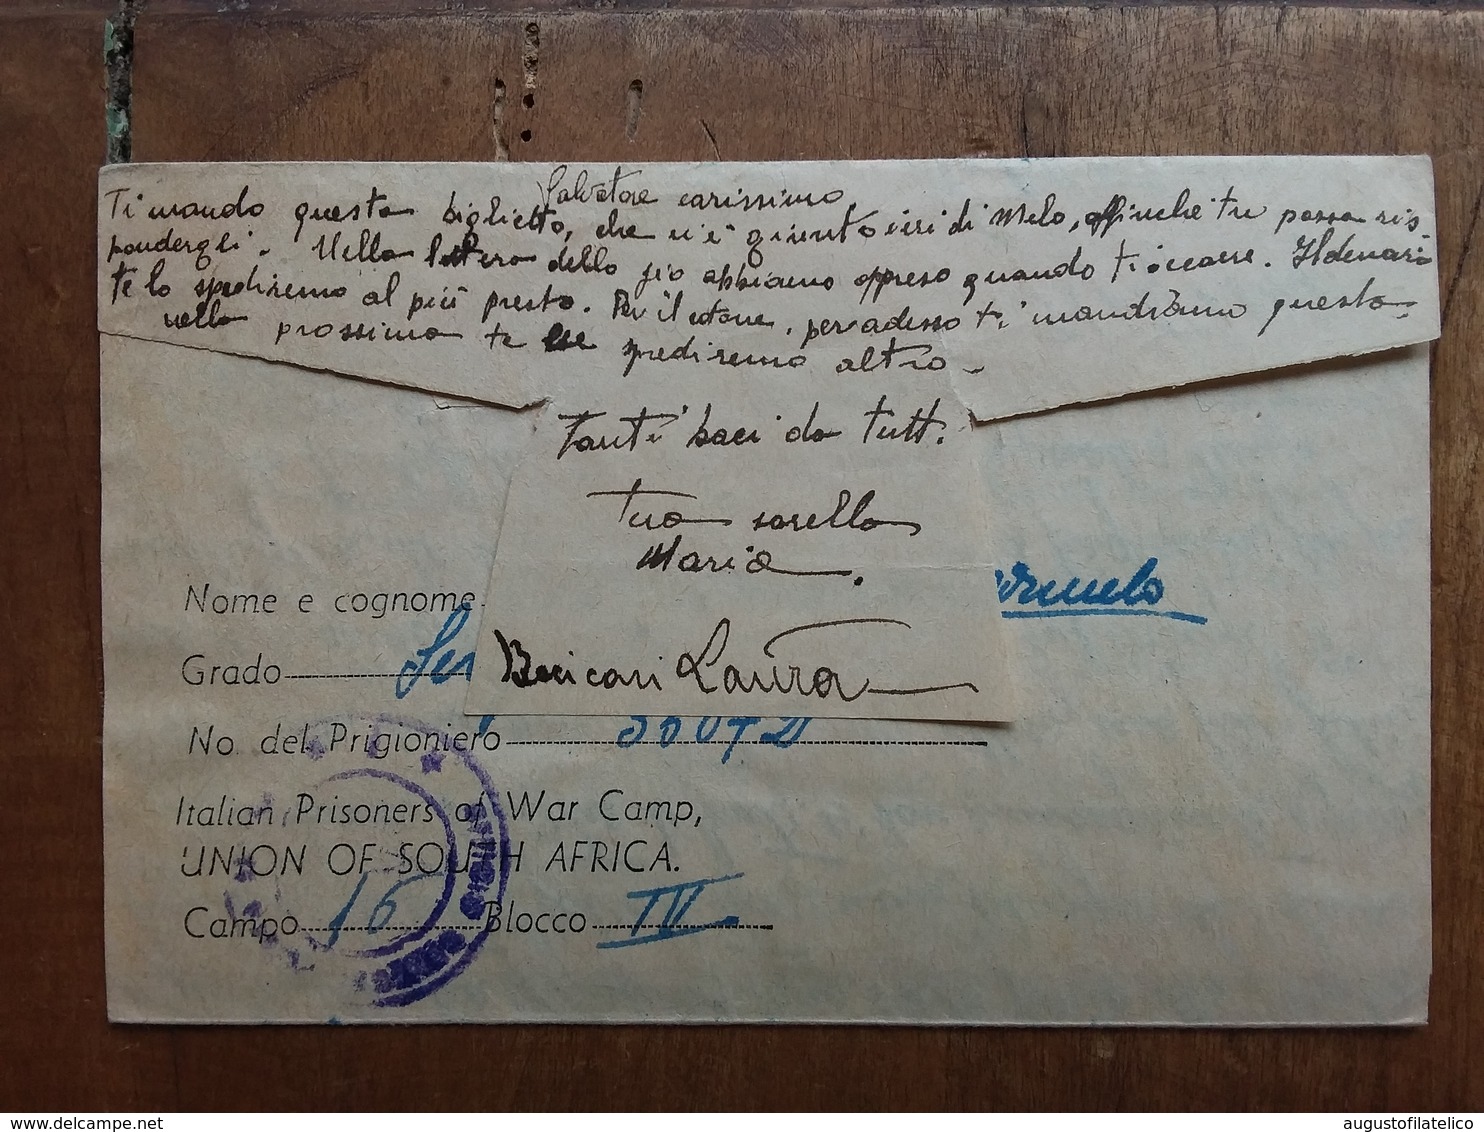 Salvatore carissimo,
Ti mando questo biglietto, che ci è giunto ieri di Melo, affinché tu possa ris-
ponderghi. Nella lettera dello zio abbiamo appreso quando ti occorre. Il denaro
te lo spediremo al più presto. Per il per adesso ti mandiamo questo
nella prossima te spediremo altro.
Tanti baci da tutti.
tua sorella
Maria.
Nome e cognome
Grado
Laura
No. del Prigioniero
Italian Prisoners of War Camp,
UNION OF SOUTH AFRICA.
Campo 16 Blocco IV
augustofilatelico